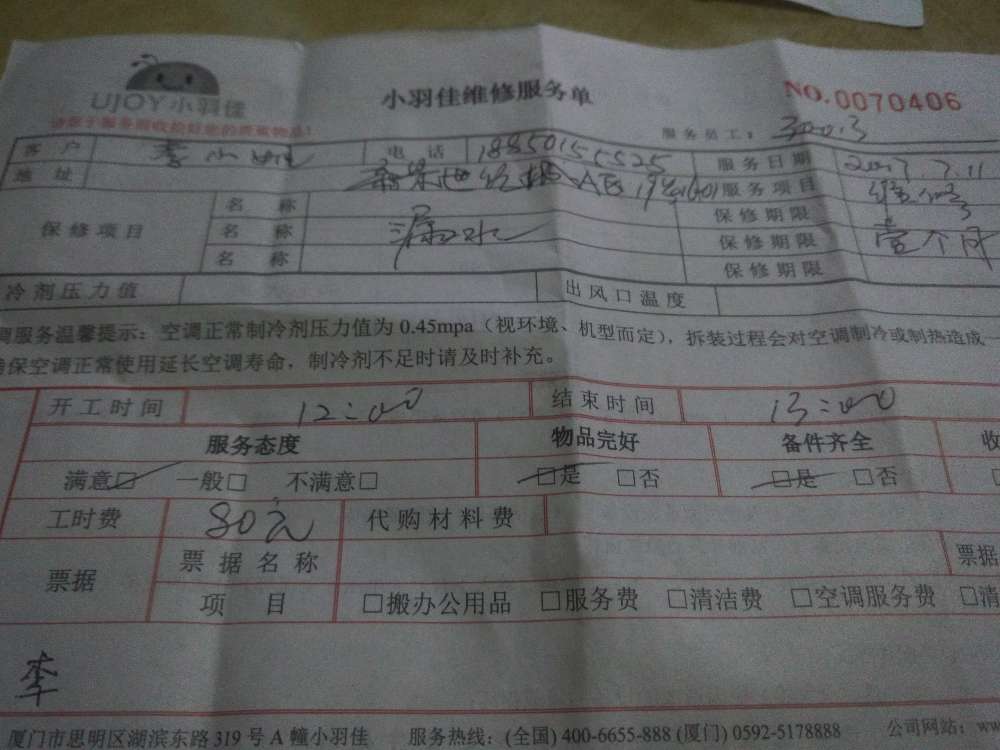 UJOY小羽佳
小羽佳维修服务单
NO.0070406
服务员工:
客户 李小姐 电话 18850155525 服务日期
地址 服务项目
保修项目 名称 保修期限
名称 漏水 保修期限 壹个月
名称 保修期限
冷剂压力值 出风口温度
调服务温馨提示：空调正常制冷剂压力值为0.45mpa（视环境、机型而定），拆装过程会对空调制冷或制热造成一
确保空调正常使用延长空调寿命，制冷剂不足时请及时补充。
开工时间 12:00 结束时间 13:00
服务态度 物品完好 备件齐全 收
满意□ 一般□ 不满意□ □是 □否 □是 □否
工时费 80元 代购材料费
票据 票据名称 票据
项目 □搬办公用品 □服务费 □清洁费 □空调服务费 □清
李
厦门市思明区湖滨东路319号A幢小羽佳 服务热线：(全国) 400-6655-888 (厦门) 0592-5178888 公司网站：ww